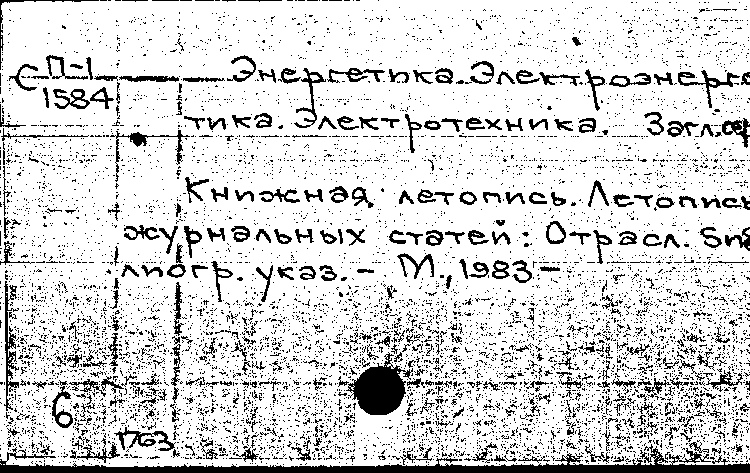 С П-1
1584
Энергетика. Электроэнерге
тика. Электротехника. Загл. сер
Книжная летопись. Летопись
журнальных статей: Отрасл. биб
лиогр. указ. - М., 1983 -
6
1763